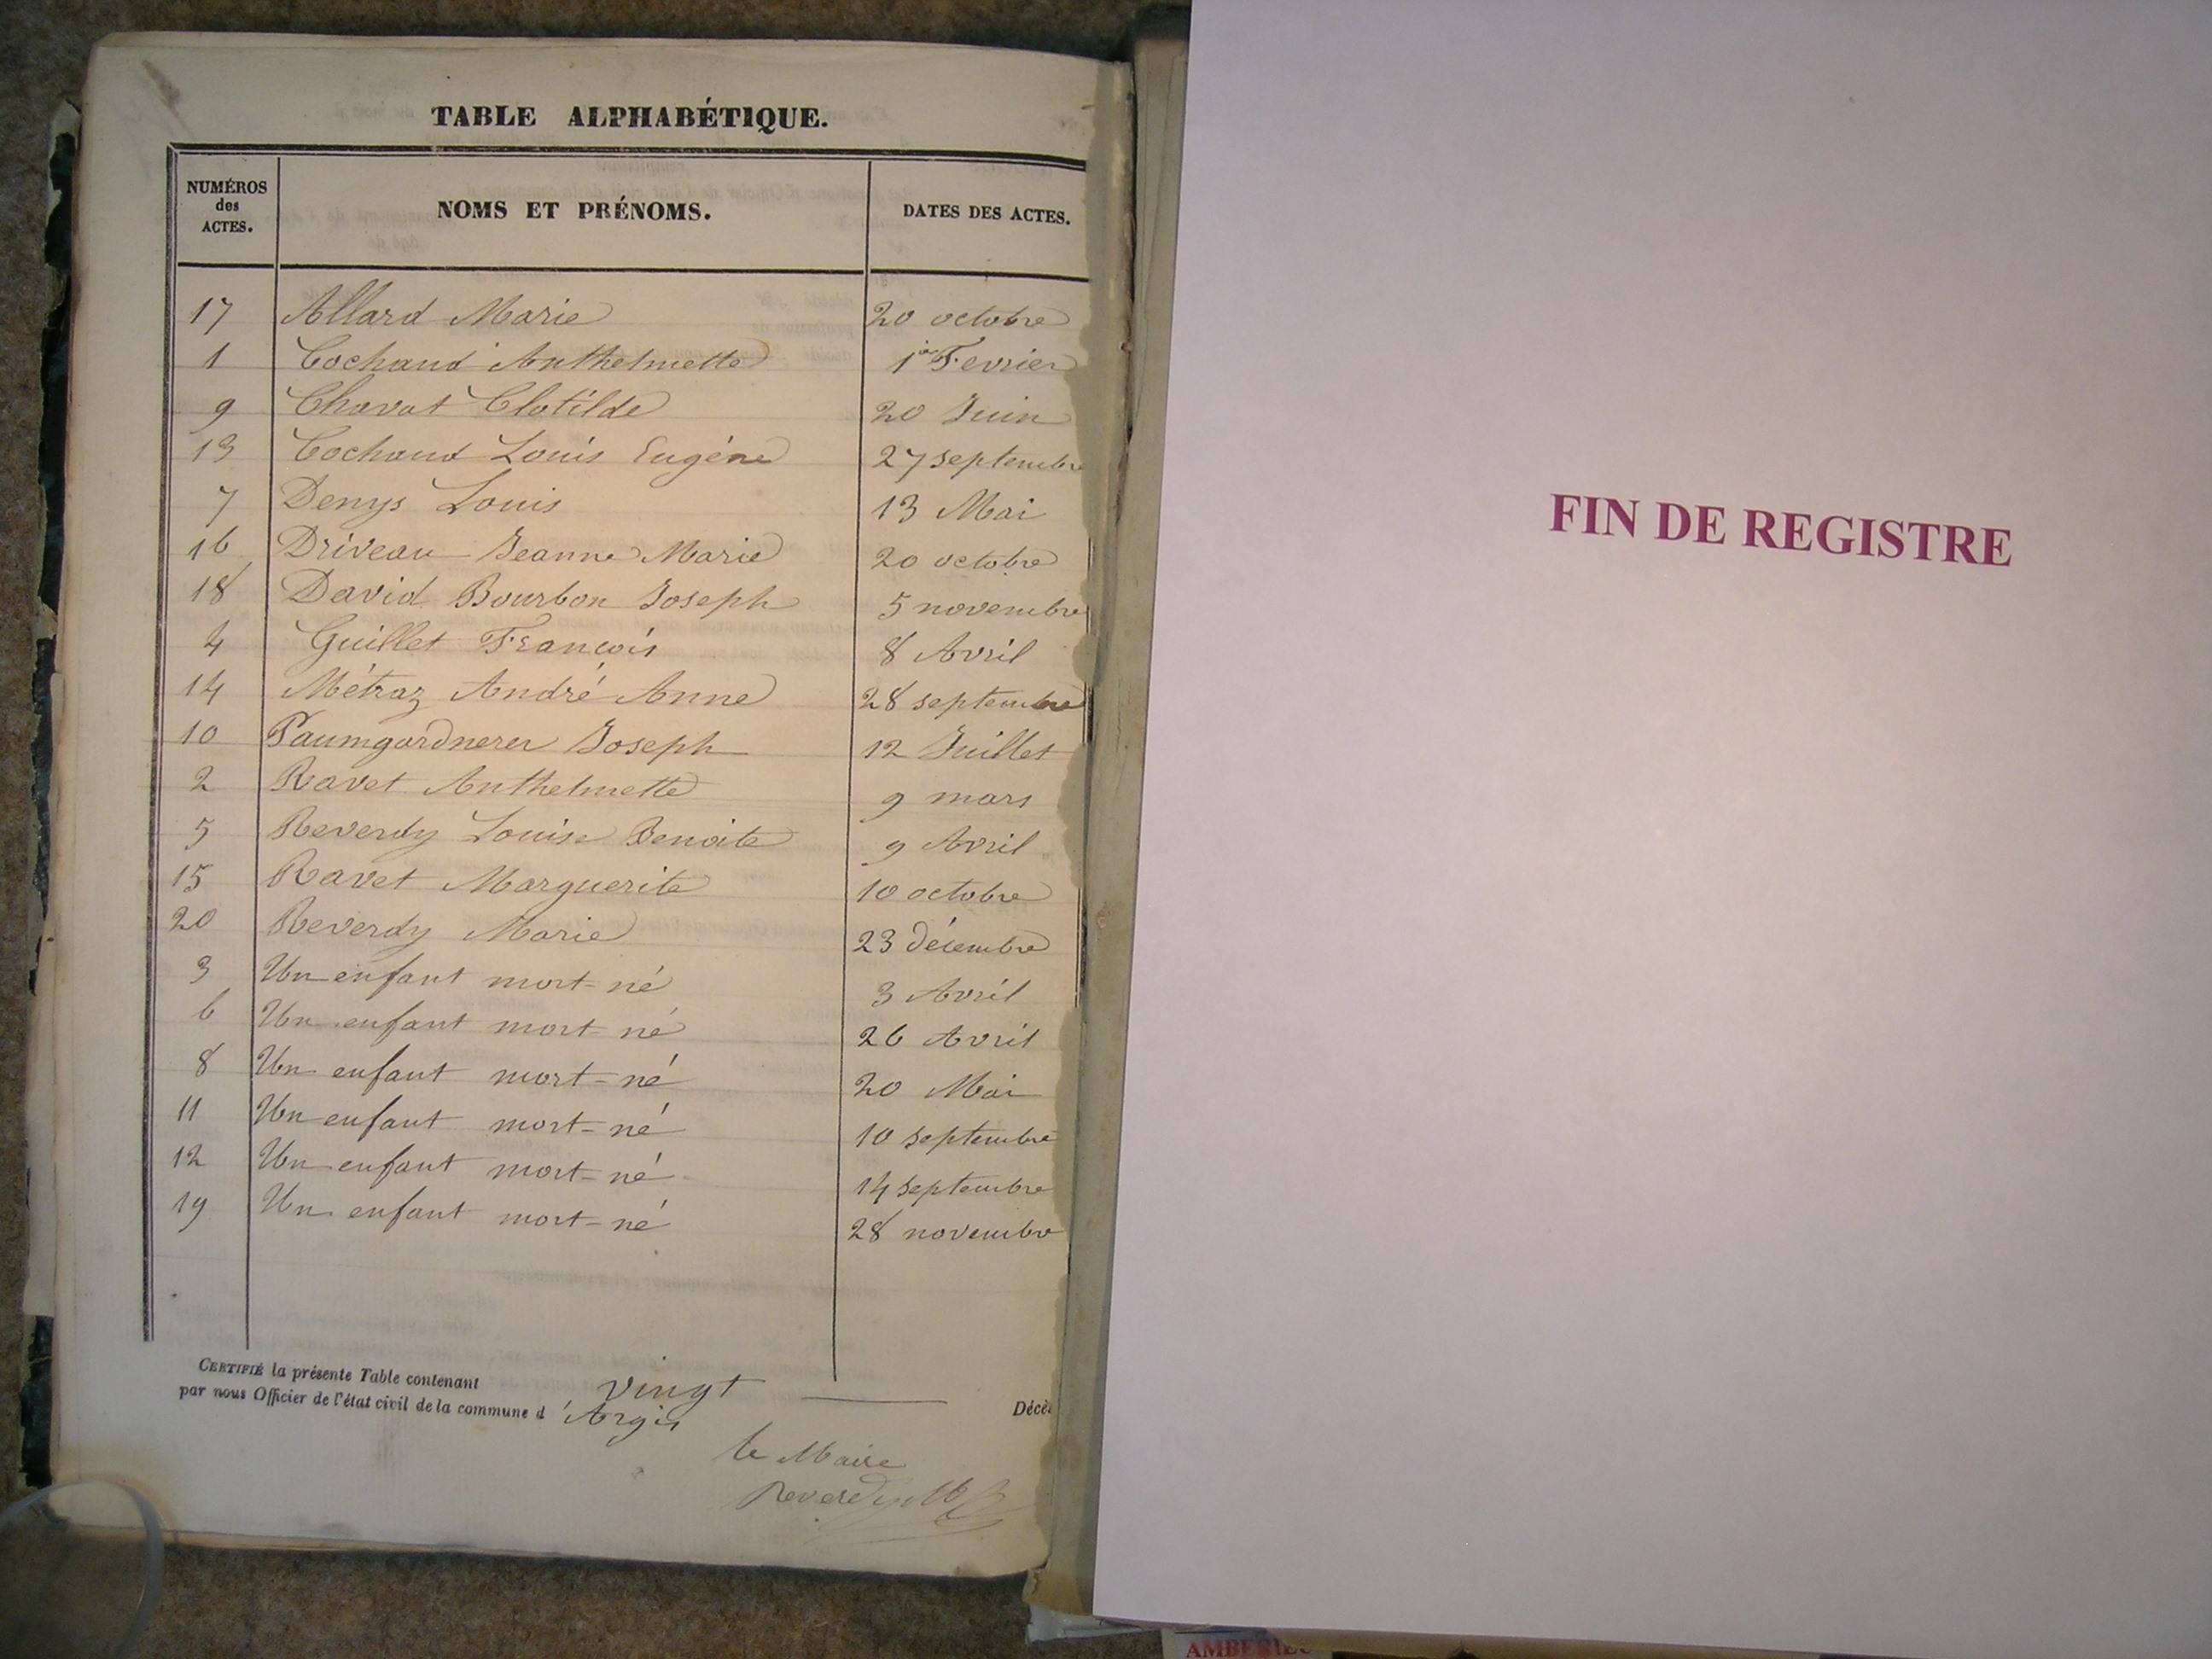 TABLE ALPHABÉTIQUE.
NUMÉROS des ACTES. NOMS ET PRÉNOMS. DATES DES ACTES.
17 Allard Marie 20 octobre
1 Cochand Anthelmette 1er Fevrier
9 Chavat Clotilde 20 Juin
13 Cochand Louis Eugéne 27 septembre
7 Denys Louis 13 Mai
16 Driveau Jeanne Marie 20 octobre
18 David Bourbon Joseph 5 novembre
4 Guillet François 8 Avril
14 Métraz André Anne 28 septembre
10 Paumgardnerer Joseph 12 Juillet
2 Ravet Anthelmette 9 mars
5 Reverdy Louise Benoite 9 Avril
15 Ravet Marguerite 10 octobre
20 Reverdy Marie 23 décembre
3 Un enfant mort-né 3 Avril
6 Un enfant mort-né 26 Avril
8 Un enfant mort-né 20 Mai
11 Un enfant mort-né 10 septembre
12 Un enfant mort-né 14 septembre
19 Un enfant mort-né 28 novembre
CERTIFIÉ la présente Table contenant vingt Décè
par nous Officier de l'état civil de la commune d'Argis
le Maire
Reverdy
FIN DE REGISTRE